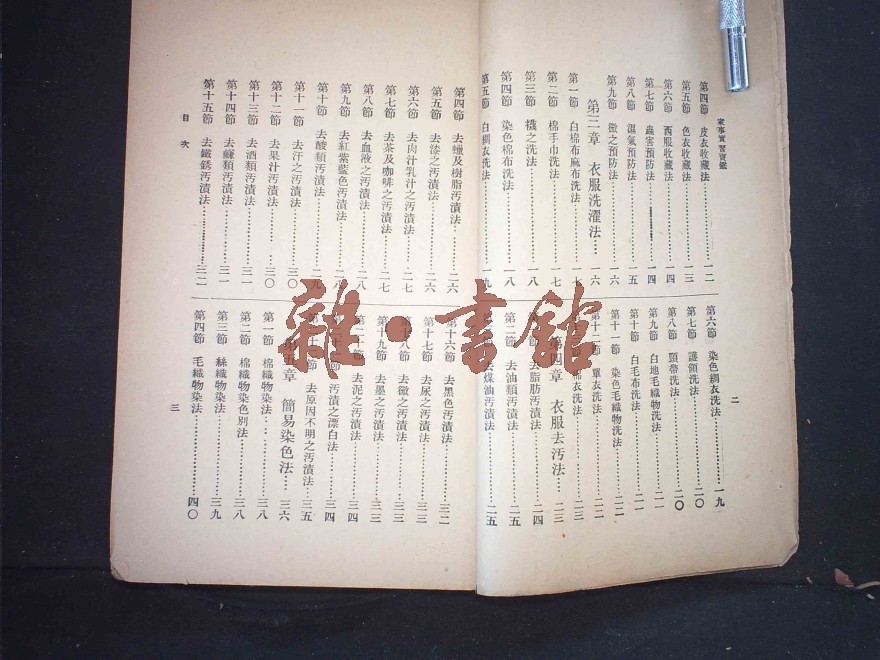 家事實習寶鑑
二
第四節 皮衣收藏法……一二
第五節 色衣收藏法……
第六節 西服收藏法……一四
第七節 蟲害預防法……一四
第八節 濕氣預防法……一五
第九節 黴之預防法……一六
第三章 衣服洗濯法……一六
第一節 白棉布麻布洗法……一七
第二節 棉手巾洗法……一七
第三節 襪之洗法……一八
第四節 染色棉布洗法……一八
第五節 白綢衣洗法……一九
第六節 染色綢衣洗法……一九
第七節 護領洗法……二〇
第八節 頸帶洗法……二〇
第九節 白地毛織物洗法……二一
第十節 白毛布洗法……二一
第十一節 染色毛織物洗法……二二
節 單衣洗法……二二
衣洗法……二三
第四章 衣服去汚法……二三
節 去脂肪汚漬法……二四
第二節 去油類汚漬法……二五
去煤油汚漬法……二五
第四節 去蠟及樹脂汚漬法……二六
第五節 去漆之汚漬法……二六
第六節 去肉汁乳汁之汚漬法……二七
第七節 去茶及咖啡之汚漬法……二七
第八節 去血液之汚漬法……二八
第九節 去紅紫藍色汚漬法……二八
第十節 去酸類汚漬法……二九
第十一節 去汗之汚漬法……三〇
第十二節 去果汁汚漬法……三〇
第十三節 去酒類汚漬法……三一
第十四節 去鹼類汚漬法……三一
第十五節 去鐵銹汚漬法……三二
第十六節 去墨色汚漬法……三二
第十七節 去尿之汚漬法……三三
八節 去黴之汚漬法……三三
第十九節 去墨之汚漬法……三三
節 去泥之汚漬法……三四
節 汚漬之漂白法……三四
節 去原因不明之汚漬法……三五
第五章 簡易染色法……三六
第一節 棉織物染法……三八
第二節 棉織物染色別法……三八
第三節 絲織物染法……三九
第四節 毛織物染法……四〇
目次
三
雜·書館